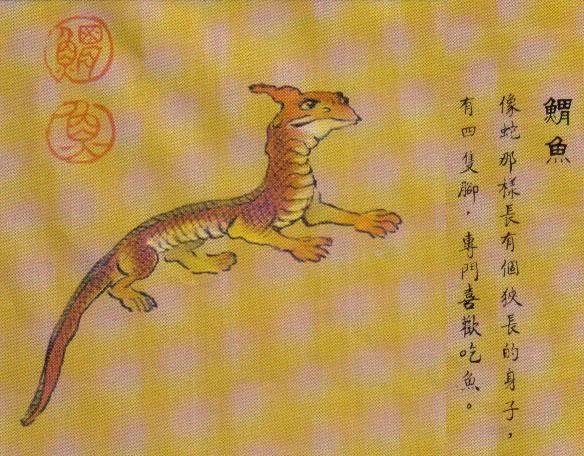 䱻魚
像蛇那樣長有個狹長的身子，
有四隻腳，專門喜歡吃魚。
䱻
魚